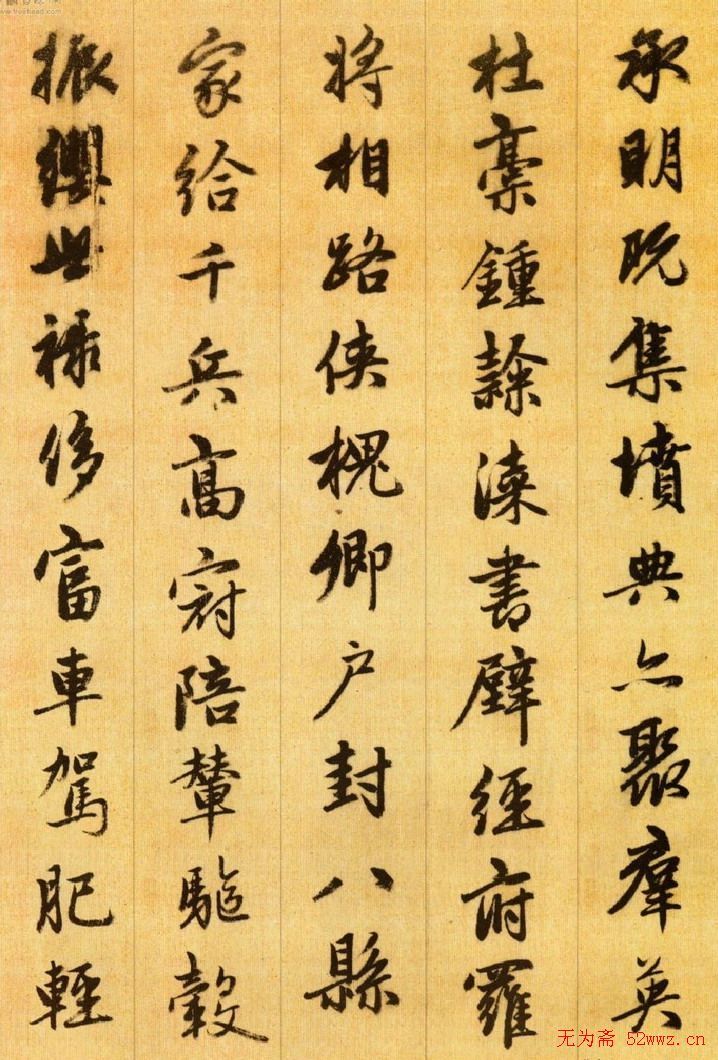 承明既集墳典亦聚群英
杜稾鍾隸漆書壁經府羅
將相路俠槐卿户封八縣
家給千兵高冠陪輦驅轂
振纓世禄侈富車駕肥輕
无为斋 52wwz.cn